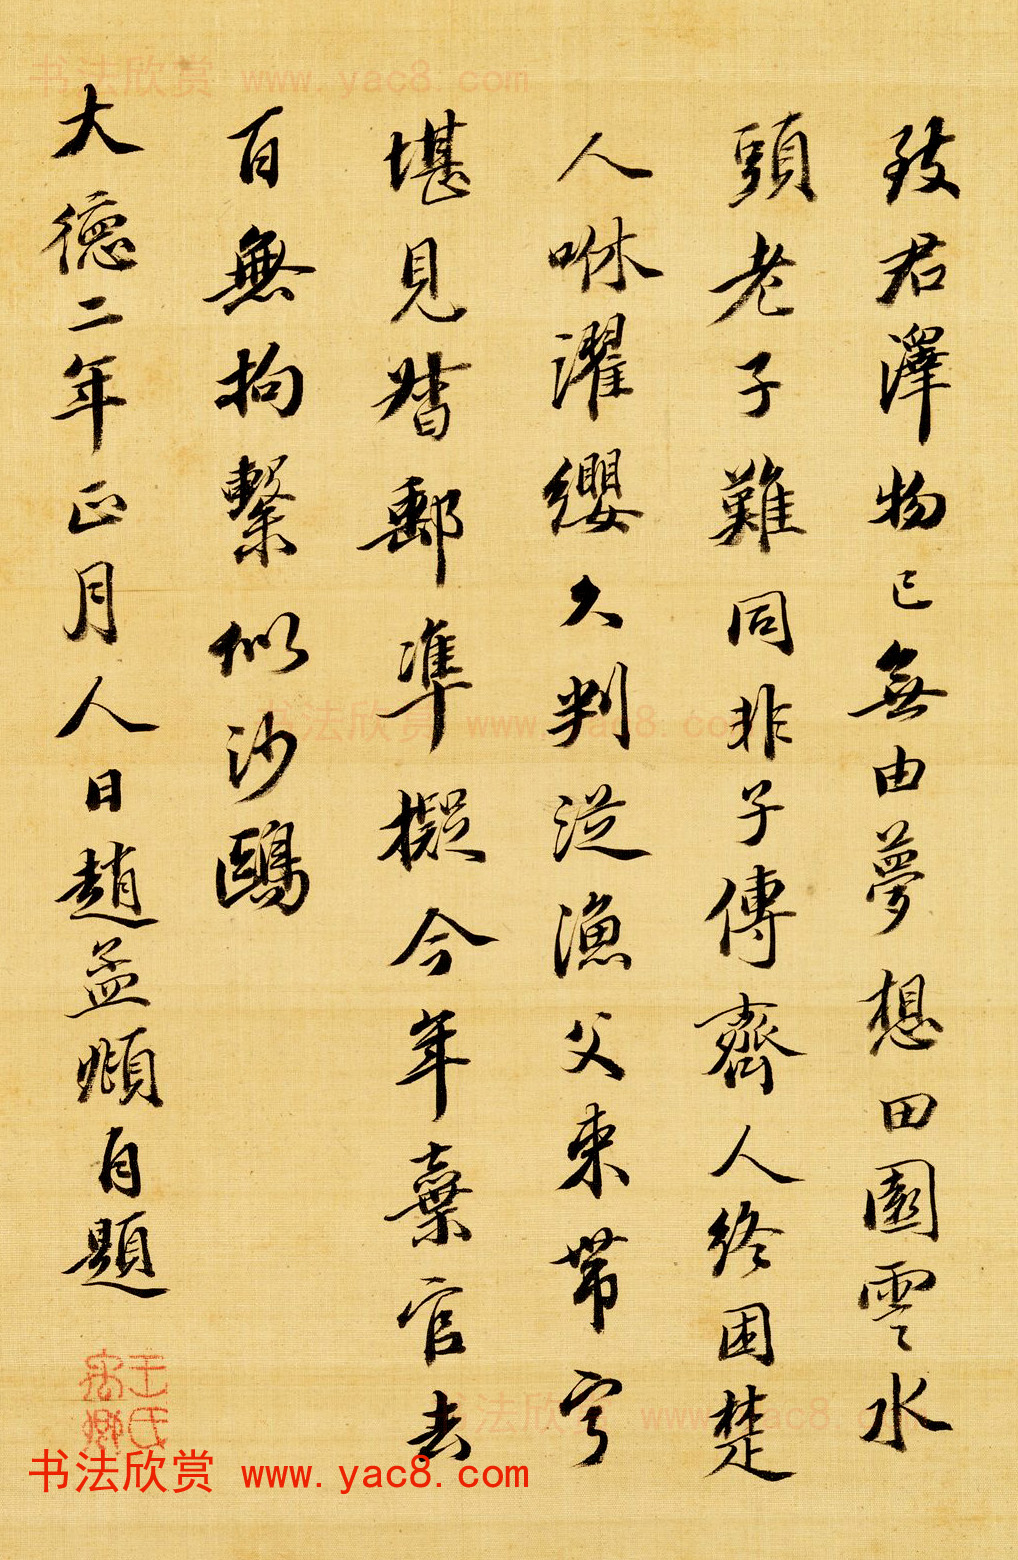 致君澤物已無由夢想田園雲水
頭老子難同非子傳齊人終困楚
人咻濯纓久判從漁父束帶寧
堪見督郵準擬今年棄官去
百無拘繫似沙鷗
大德二年正月人日趙孟頫自題
书法欣赏 www.yac8.com
书法欣赏 www.yac8.com
书法欣赏 www.yac8.com
书法欣赏 www.yac8.com